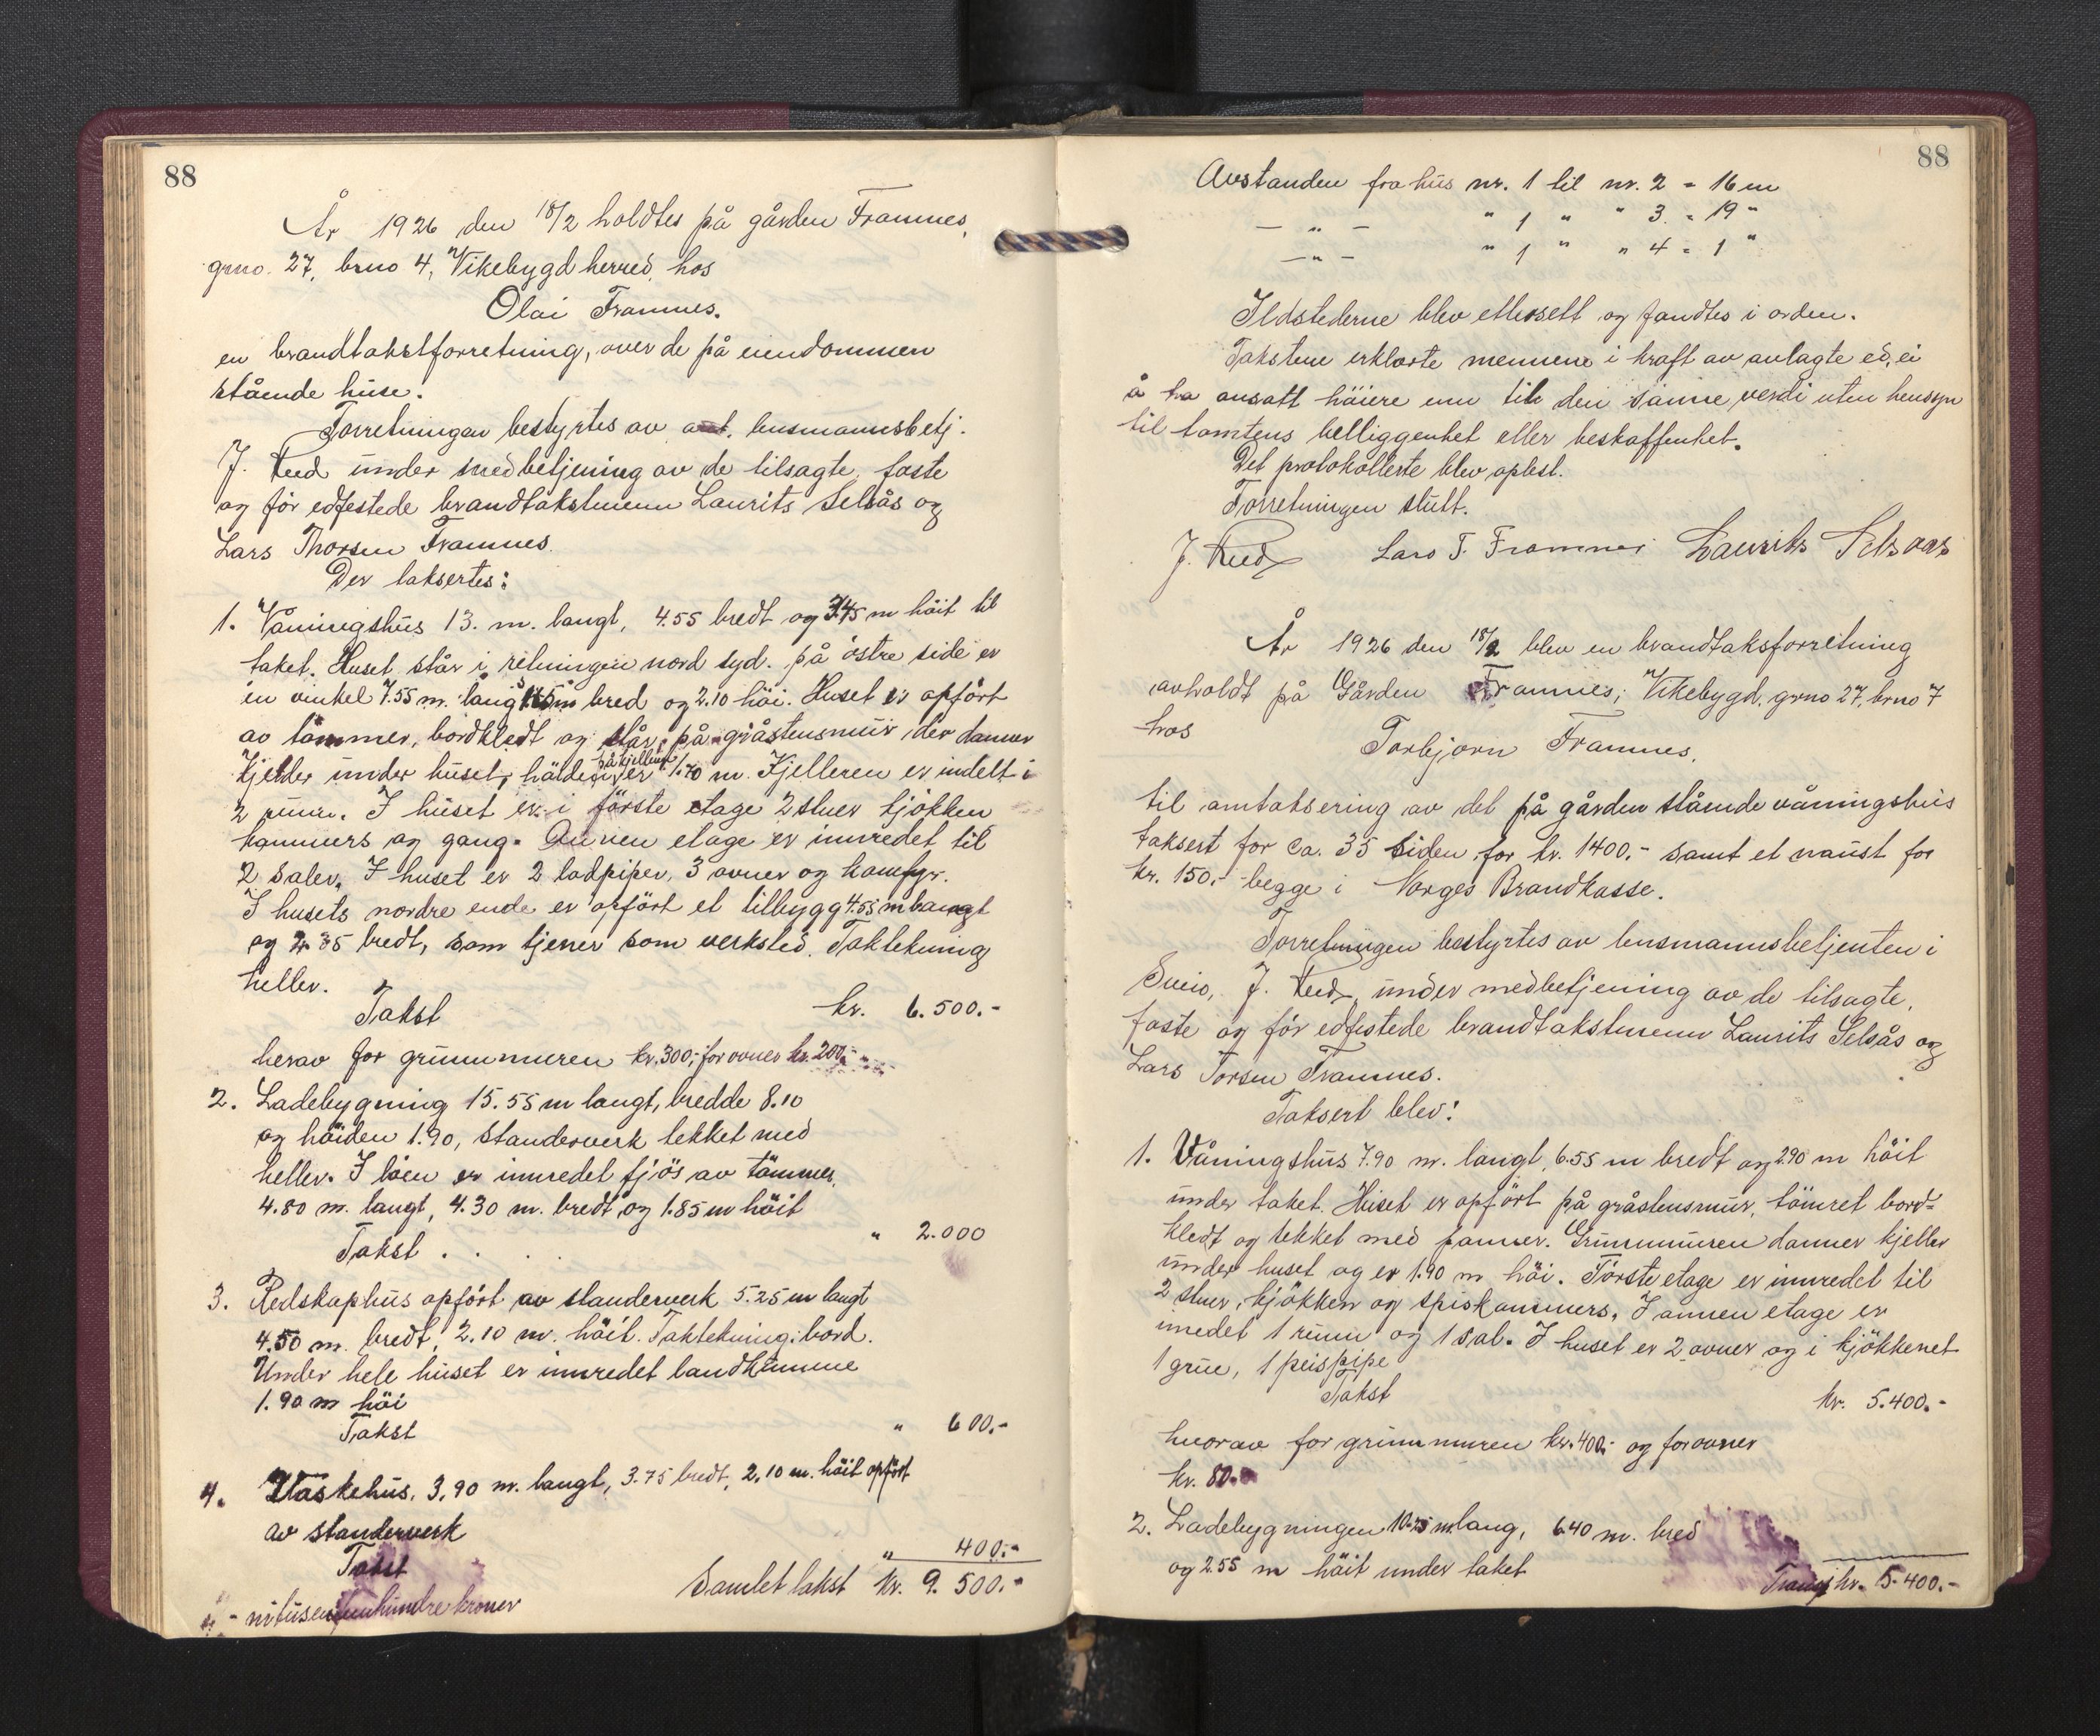 88
År 1926 den 18/2 holdtes på gården Framnes,
grno. 27, brno 4, Vikebygd herred, hos
Olai Framnes.
en brandtakstforretning, over de på eiendommen
stående huse.
Forretningen bestyrtes av lensmannsbetj.
J. under medbetjening av de tilsagte, faste
og för edfestede brandtakstmenn Laurits Selsås og
Lars Thorsen Framnes.
Der taksertes:
1. Våningshus 13. m. langt, 4.55 bredt og 3.45 m höit til
taket. Huset står i retningen nord syd. på östre side er
en vinkel 7.55 m. lang bred og 2.10 höi. Huset er opfört
av tömmer, bordkledt og står på gråstensmur, der danner
Kjelder under huset, höiden på kjelleren er 1.70 m. Kjelleren er indelt i
2 rum. I huset er i förste etage 2 stuer kjökken
kammers og gang. Annen etage er innredet til
2 saler. I huset er 2 lodpiper, 3 ovner og komfyr.
I husets nordre ende er opfört et tilbygg 4.55 m langt
og 2.85 bredt, som tjener som verksted. Taktekning
heller.
Takst kr. 6.500.-
herav for grunnmuren kr. 300,- for ovner kr. 200,-
2. Ladebygning 15.55 m langt, bredde 8.10
og höiden 1.90, standerverk tekket med
heller. I löen er innredet fjös av tömmer,
4.80 m. langt, 4.30 m. bredt og 1.85 m höit
Takst . . . " 2.000
3. Redskaphus opfört av standerverk 5.25 m langt
4.50 m. bredt, 2.10 m. höit. Taktekning: bord.
Under hele huset er innredet landkumme
1.90 m höi
Takst " 600.-
4. Vaskehus, 3,90 m. langt, 3.75 bredt, 2.10 m. höit opfört
av standerverk
Takst " 400.-
Samlet takst kr. 9.500.-
- nitusenfemhundre kroner
88
Avstanden fra hus nr. 1 til nr. 2 = 16 m
- " - " 1 " " 3. = 19 "
- " - " 1 " " 4 = 1 "
Ildstederne blev ettersett og fandtes i orden.
Takstene erklærte mennene i kraft av avlagte ed, ei
å ha ansatt höiere enn til den sanne verdi uten hensyn
til tomtens belliggenhet eller beskaffenhet.
Det protokollerte blev oplest.
Forretningen slutt.
J. Lars T. Framnes Laurits Selsaas
År 1926 den 18/2 blev en brandtaksforretning
avholdt på Gården Framnes, Vikebygd, grno 27, brno 7
hos
Torbjørn Framnes,
til omtaksering av det på gården stående våningshus
taksert for ca. 35 siden for kr. 1400.- samt et naust for
kr. 150.- begge i Norges Brandkasse.
Forretningen bestyrtes av lensmannsbetjenten i
Sveio, J. under medbetjening av de tilsagte,
faste og för edfestede brandtakstmenn Laurits Selsås og
Lars Torsen Framnes.
Taksert blev:
1. Våningshus 7.90 m. langt, 6.55 m bredt og 2.90 m höit
under taket. Huset er opfört på gråstensmur, tömret bord-
kledt og tekket med panner. Grunnmuren danner kjeller
under huset og er 1.90 m höi. Förste etage er innredet til
2 stuer, kjökken og spiskammers, I annen etage er
innedet 1 rum og 1 sal. I huset er 2 ovner og i kjökkenet
1 grue, 1 peispipe
Takst kr. 5.400.-
hvorav for grunnmuren kr. 400.- og for ovner
kr. 80.-
2. Ladebygningen 10.25 m lang, 6.40 m. bred
og 2.55 m höit under taket
Transp kr. 5.400.-